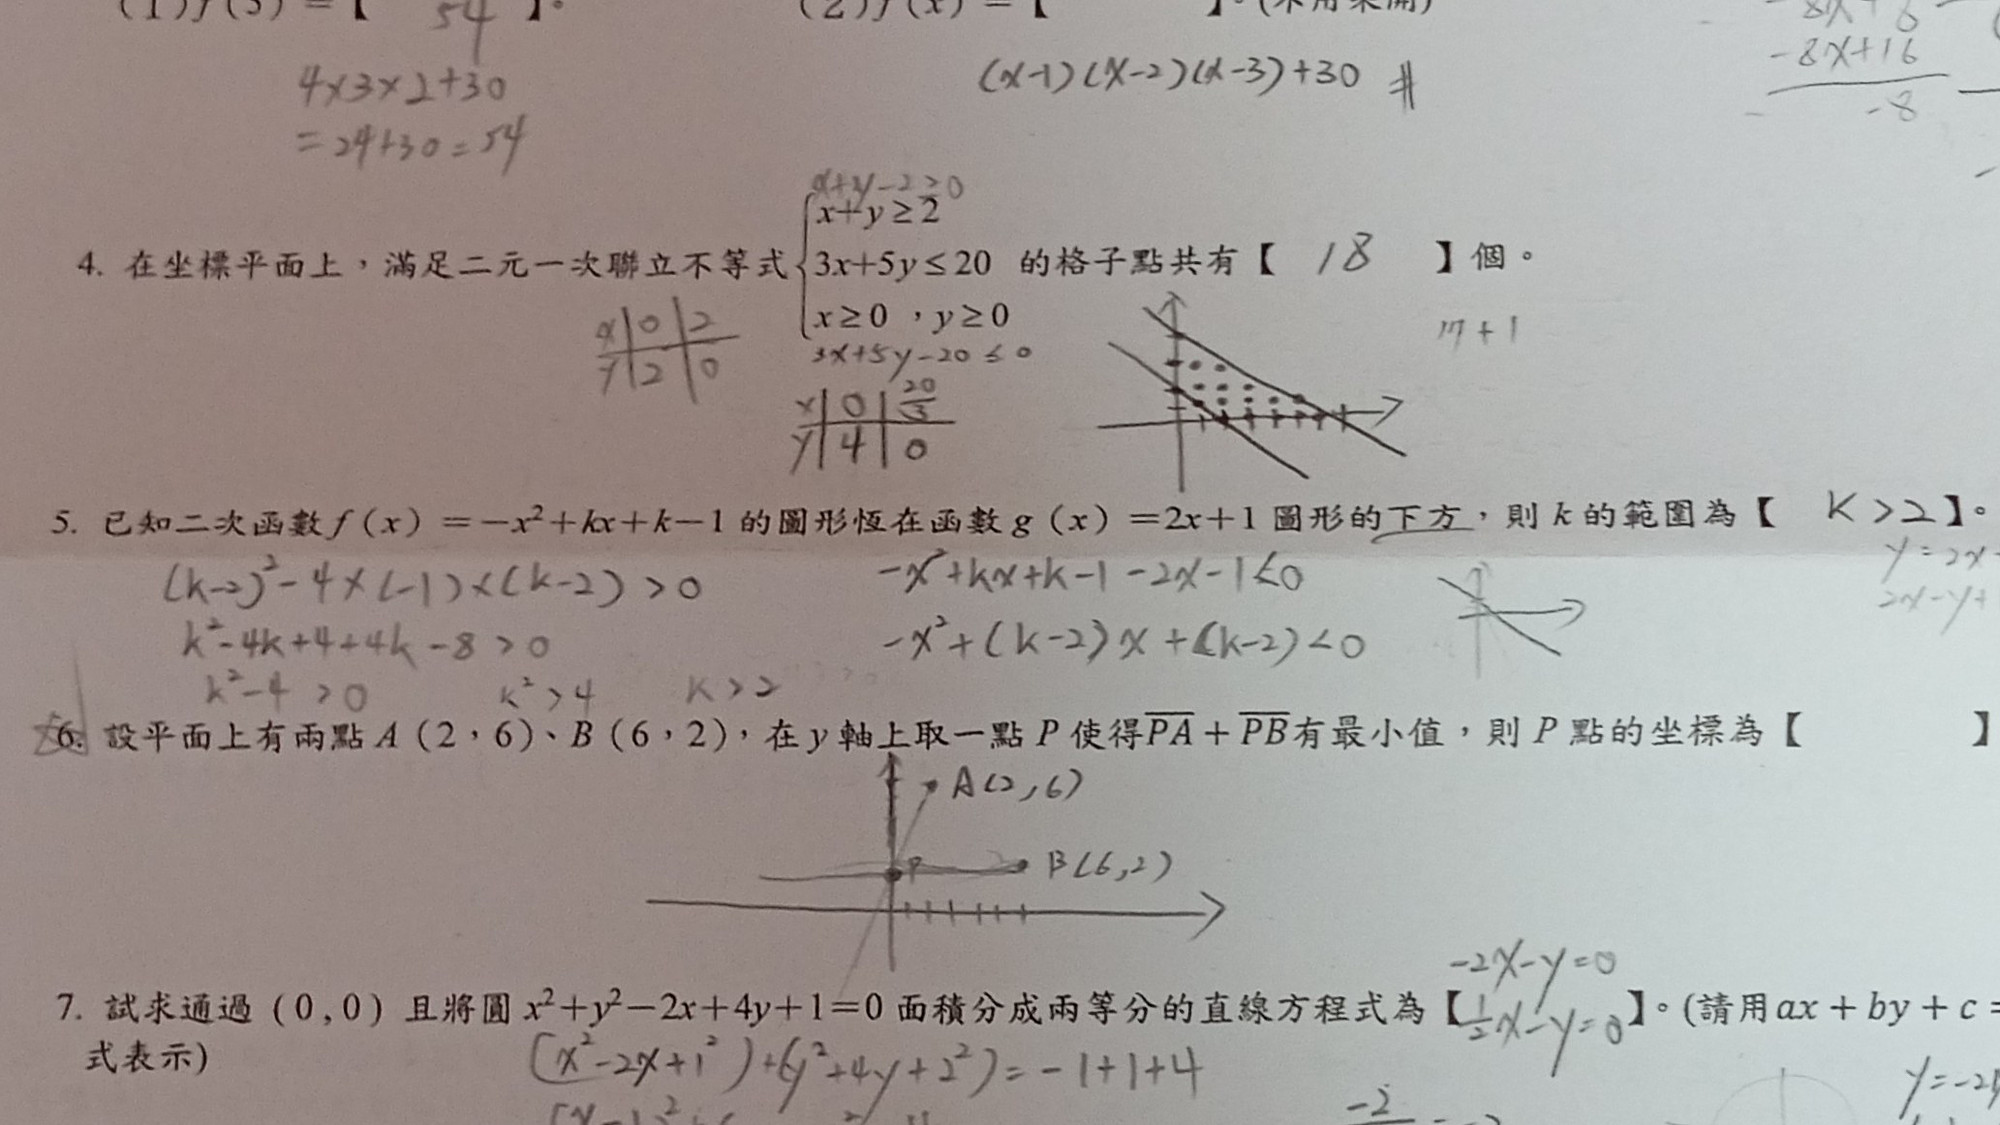 (1)f(5)=【 54 】。 (2)f(x)=【 】。(不用乘開)
4×3×2+30
=24+30=54
(x-1)(x-2)(x-3)+30 #
-8x+16
-8
x+y-2≥0
x+y≥2
4. 在坐標平面上，滿足二元一次聯立不等式 3x+5y≤20 的格子點共有【 18 】個。
x≥0 ，y≥0
17+1
3x+5y-20≤0
x 0 2
y 2 0
x 0 20/3
y 4 0
5. 已知二次函數f(x)=-x²+kx+k-1的圖形恆在函數g(x)=2x+1圖形的下方，則k的範圍為【 K>2】。
(k-2)²-4×(-1)×(k-2)>0
-x²+kx+k-1-2x-1<0
y=2x
2x-y+
k²-4k+4+4k-8>0
-x²+(k-2)x+(k-2)<0
k²-4>0 k²>4 k>2
6. 設平面上有兩點A(2，6)、B(6，2)，在y軸上取一點P使得PA+PB有最小值，則P點的坐標為【 】
A(2,6)
P
B(6,2)
-2x-y=0
7. 試求通過(0,0)且將圓x²+y²-2x+4y+1=0面積分成兩等分的直線方程式為【½x-y=0】。(請用ax+by+c=
式表示)
(x²-2x+1²)+(y²+4y+2²)=-1+1+4
y=-2x